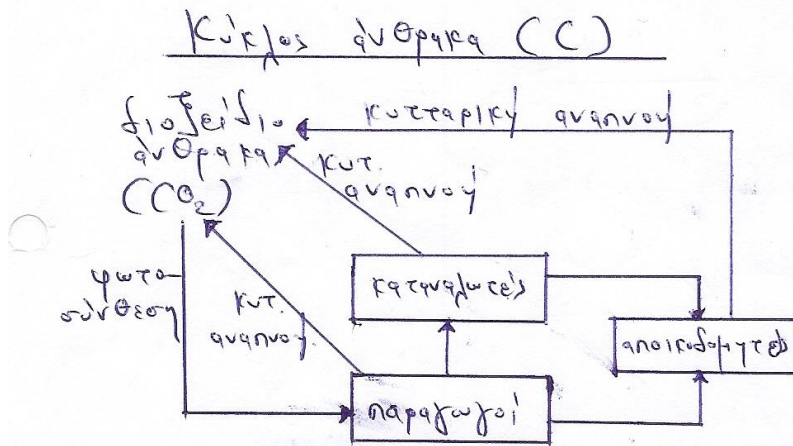 Κύκλος άνθρακα (C)
διοξείδιο
άνθρακα
(CO₂)
κυτταρική αναπνοή
κυτ.
αναπνοή
φωτο-
σύνθεση
κυτ.
αναπνοή
καταναλωτές
αποικοδομητές
παραγωγοί